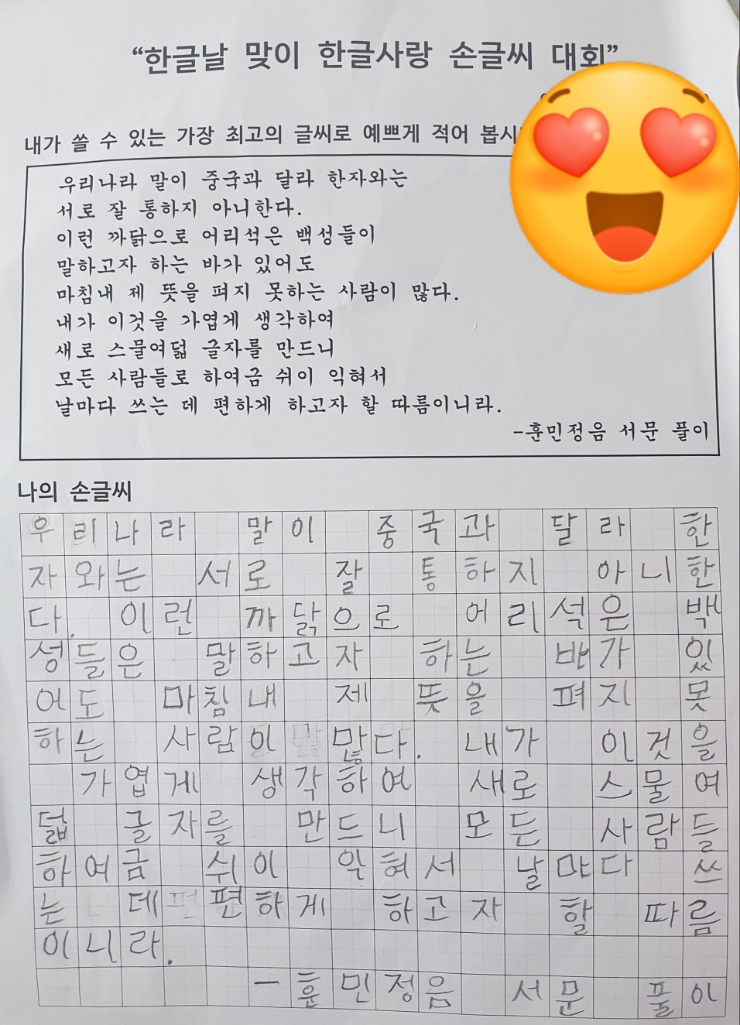 “한글날 맞이 한글사랑 손글씨 대회”
내가 쓸 수 있는 가장 최고의 글씨로 예쁘게 적어
우리나라 말이 중국과 달라 한자와는
서로 잘 통하지 아니한다.
이런 까닭으로 어리석은 백성들이
말하고자 하는 바가 있어도
마침내 제 뜻을 펴지 못하는 사람이 많다.
내가 이것을 가엽게 생각하여
새로 스물여덟 글자를 만드니
모든 사람들로 하여금 쉬이 익혀서
날마다 쓰는 데 편하게 하고자 할 따름이니라.
-훈민정음 서문 풀이
나의 손글씨
우리나라 말이 중국과 달라 한
자와는 서로 잘 통하지 아니한
다. 이런 까닭으로 어리석은 백
성들은 말하고자 하는 바가 있
어도 마침내 제 뜻을 펴지 못
하는 사람이 많다. 내가 이것을
가엽게 생각하여 새로 스물여
덟 글자를 만드니 모든 사람들
하여금 쉬이 익혀서 날마다 쓰
는 데 편하게 하고자 할 따름
이니라.
- 훈민정음 서문 풀이